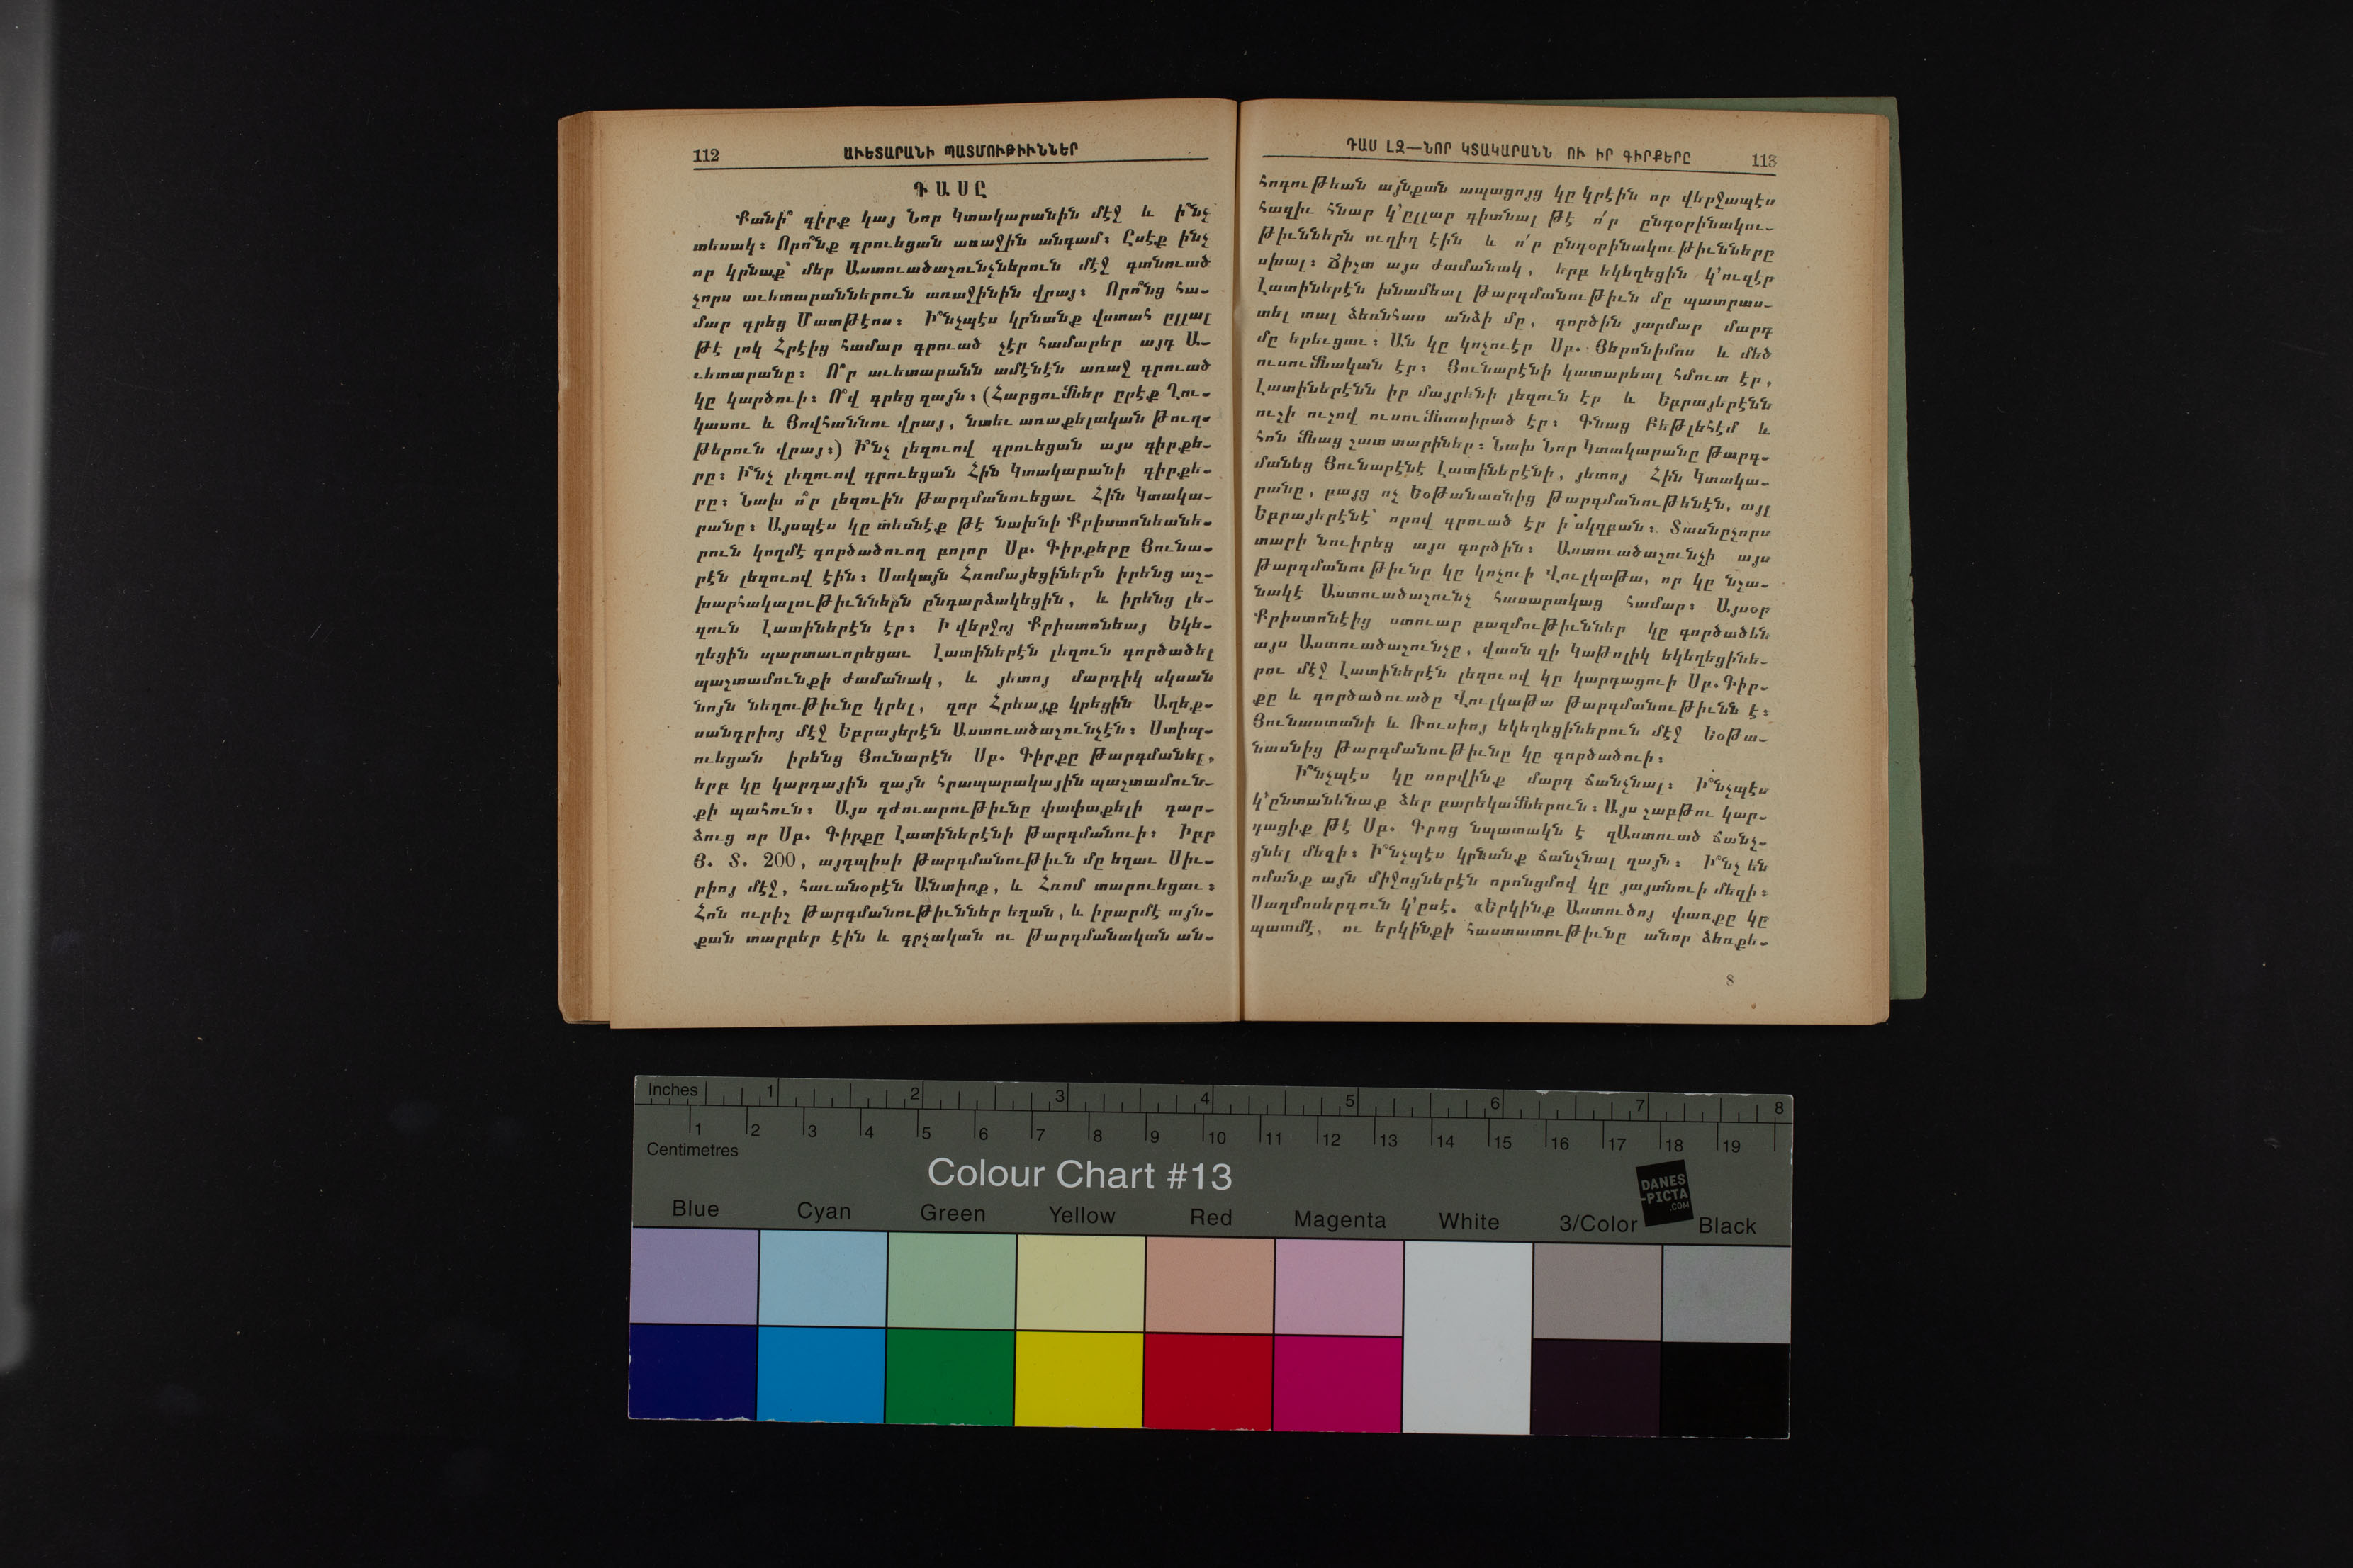 112
ԱՒԵՏԱՐԱՆԻ ՊԱՏՄՈՒԹԻՒՆՆԵՐ
ԴԱՍԸ
Քանի՞ գիրք կայ Նոր Կտակարանին մէջ և ի՞նչ
տեսակ։ Որո՞նք գրուեցան առաջին անգամ։ Ըսէք ինչ
որ կրնաք՝ մեր Աստուածաշունչներուն մէջ գտնուած
չորս աւետարաններուն առաջինին վրայ։ Որո՞նց հա-
մար գրեց Մատթէոս։ Ի՞նչպէս կրնանք վստահ ըլլալ
թէ լոկ Հրէից համար գրուած չէր համարեր այդ Ա-
ւետարանը։ Ո՞ր աւետարանն ամէնէն առաջ գրուած
կը կարծուի։ Ո՞վ գրեց զայն։ (Հարցումներ ըրէք Ղու-
կասու և Յովհաննու վրայ, նաեւ առաքելական թուղ-
թերուն վրայ։) Ի՞նչ լեզուով գրուեցան այս գիրքե-
րը։ Ի՞նչ լեզուով գրուեցան Հին Կտակարանի գիրքե-
րը։ Նախ ո՞ր լեզուին թարգմանուեցաւ Հին Կտակա-
րանը։ Այսպէս կը տեսնէք թէ նախնի Քրիստոնեանե-
րուն կողմէ գործածուող բոլոր Սբ. Գիրքերը Յունա-
րէն լեզուով էին։ Սակայն Հռոմայեցիներն իրենց աշ-
խարհակալութիւններն ընդարձակեցին, և իրենց լե-
զուն Լատիներէն էր։ Ի վերջոյ Քրիստոնեայ Եկե-
ղեցին պարտաւորեցաւ Լատիներէն լեզուն գործածել
պաշտամունքի ժամանակ, և յետոյ մարդիկ սկսան
նոյն նեղութիւնը կրել, զոր Հրեայք կրեցին Աղեք-
սանդրիոյ մէջ Եբրայերէն Աստուածաշունչէն։ Ստիպ-
ուեցան իրենց Յունարէն Սբ. Գիրքը թարգմանել,
երբ կը կարդային զայն հրապարակային պաշտամուն-
քի պահուն։ Այս դժուարութիւնը փափաքելի դար-
ձուց որ Սբ. Գիրքը Լատիներէնի թարգմանուի։ Իբր
Յ. Տ. 200, այդպիսի թարգմանութիւն մը եղաւ Սիւ-
րիոյ մէջ, հաւանօրէն Անտիոք, և Հռոմ տարուեցաւ։
Հոն ուրիշ թարգմանութիւններ եղան, և իրարմէ այն-
քան տարբեր էին և գրչական ու թարգմանական ան-
ԴԱՍ ԼԶ—ՆՈՐ ԿՏԱԿԱՐԱՆՆ ՈՒ ԻՐ ԳԻՐՔԵՐԸ
113
հոգութեան այնքան ապացոյց կը կրէին որ վերջապէս
հազիւ հնար կ՚ըլլար գիտնալ թէ ո՛ր ընդօրինակու-
թիւններն ուղիղ էին և ո՛ր ընդօրինակութիւնները
սխալ։ Ճիշտ այս ժամանակ, երբ եկեղեցին կ՚ուզէր
Լատիներէն խնամեալ թարգմանութիւն մը պատրաս-
տել տալ ձեռնհաս անձի մը, գործին յարմար մարդ
մը երեւցաւ։ Ան կը կոչուէր Սբ. Յերոնիմոս և մեծ
ուսումնական էր։ Յունարէնի կատարեալ հմուտ էր,
Լատիներէնն իր մայրենի լեզուն էր և Եբրայերէնն
ուշի ուշով ուսումնասիրած էր։ Գնաց Բեթլեհէմ և
հոն մնաց շատ տարիներ։ Նախ Նոր Կտակարանը թարգ-
մանեց Յունարէնէ Լատիներէնի, յետոյ Հին Կտակա-
րանը, բայց ոչ Եօթանասնից թարգմանութենէն, այլ
Եբրայերէնէ՝ որով գրուած էր ի սկզբան։ Տասնըչորս
տարի նուիրեց այս գործին։ Աստուածաշունչի այս
թարգմանութիւնը կը կոչուի Վուլկաթա, որ կը նշա-
նակէ Աստուածաշունչ հասարակաց համար։ Այսօր
Քրիստոնէից ստուար բազմութիւններ կը գործածեն
այս Աստուածաշունչը, վասն զի Կաթոլիկ եկեղեցինե-
րու մէջ Լատիներէն լեզուով կը կարդացուի Սբ. Գիր-
քը և գործածուածը Վուլկաթա թարգմանութիւնն է։
Յունաստանի և Ռուսիոյ եկեղեցիներուն մէջ Եօթա-
նասնից թարգմանութիւնը կը գործածուի։
Ի՞նչպէս կը սորվինք մարդ ճանչնալ։ Ի՞նչպէս
կ՚ընտանենաք ձեր բարեկամներուն։ Այս շաբթու կար-
դացիք թէ Սբ. Գրոց նպատակն է զԱստուած ճանչ-
ցնել մեզի։ Ի՞նչպէս կրնանք ճանչնալ զայն։ Ի՞նչ են
ոմանք այն միջոցներէն որոնցմով կը յայտնուի մեզի։
Սաղմոսերգուն կ՚ըսէ. «Երկինք Աստուծոյ փառքը կը
պատմէ, ու երկինքի հաստատութիւնը անոր ձեռքե-
8
Inches 1 2 3 4 5 6 7 8
1 2 3 4 5 6 7 8 9 10 11 12 13 14 15 16 17 18 19
Centimetres
Colour Chart #13
DANES
-PICTA
.COM
Blue Cyan Green Yellow Red Magenta White 3/Color Black